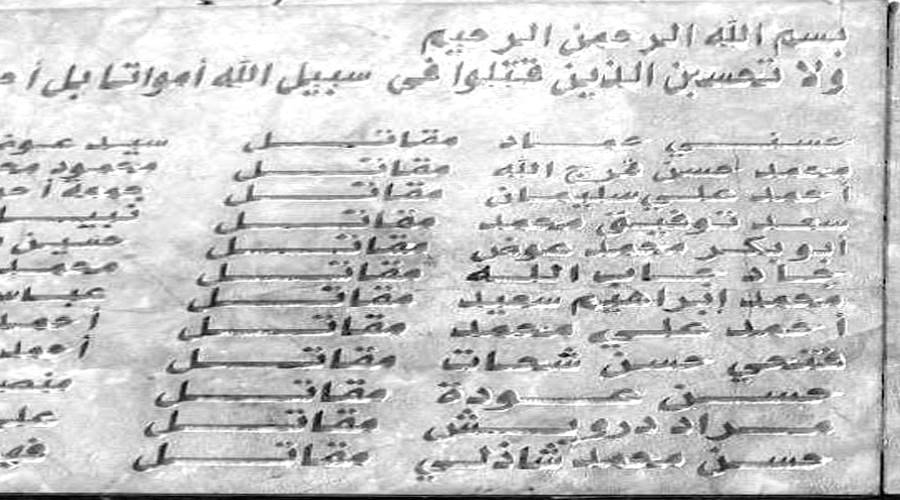 بسم الله الرحمن الرحيم
ولا تحسبن الذين قتلوا في سبيل الله أمواتا بل أح
حسني حماد مقاتل سيد عوض
محمد حسن فرج الله مقاتل محمود مح
أحمد علي سليمان مقاتل جمعة أحم
سعد توفيق محمد مقاتل نبيل
أبو بكر محمد عوض مقاتل حسين
جاد جاب الله مقاتل محمد
محمد إبراهيم سعيد مقاتل عباس
أحمد علي محمد مقاتل أحمد
فتحي حسن شحات مقاتل أحمد
حسن عودة مقاتل منص
مراد درويش مقاتل علي
حسن محمد شاذلي مقاتل فه